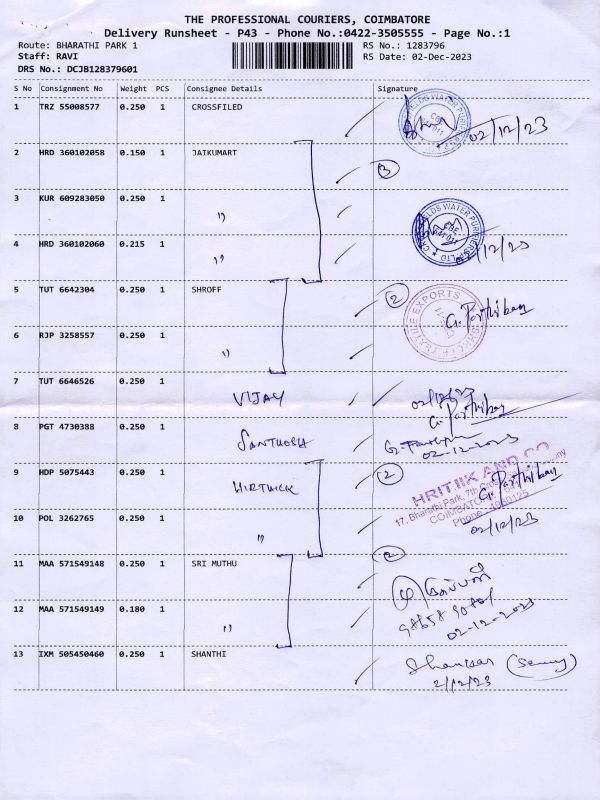 THE PROFESSIONAL COURIERS, COIMBATORE
Delivery Runsheet - P43 - Phone No.:0422-3505555 - Page No.:1
Route: BHARATHI PARK 1 RS No.: 1283796
Staff: RAVI RS Date: 02-Dec-2023
DRS No.: DCJB128379601
S No Consignment No Weight PCS Consignee Details Signature
1 TRZ 55008577 0.250 1 CROSSFILED 02/12/23
2 HRD 360102058 0.150 1 JAIKUMART 3
3 KUR 609283050 0.250 1 "
4 HRD 360102060 0.215 1 " /12/23
5 TUT 6642304 0.250 1 SHROFF 2
TEXTILE EXPORTS
G. Parthiban
6 RJP 3258557 0.250 1 "
7 TUT 6646526 0.250 1 VIJAY 02/12/23
G. Parthiban
8 PGT 4730388 0.250 1 SANTHOSH
02-12-2023
9 HDP 5075443 0.250 1 HIRTHICK 2
HRITIIK AND CO
17, Bharathi Park, 7th Cross
G. Parthiban
10 POL 3262765 0.250 1 "
Phone
02/12/23
11 MAA 571549148 0.250 1 SRI MUTHU 2
12 MAA 571549149 0.180 1 "
02-12-2023
13 IXM 505450460 0.250 1 SHANTHI Shankar
2/12/23